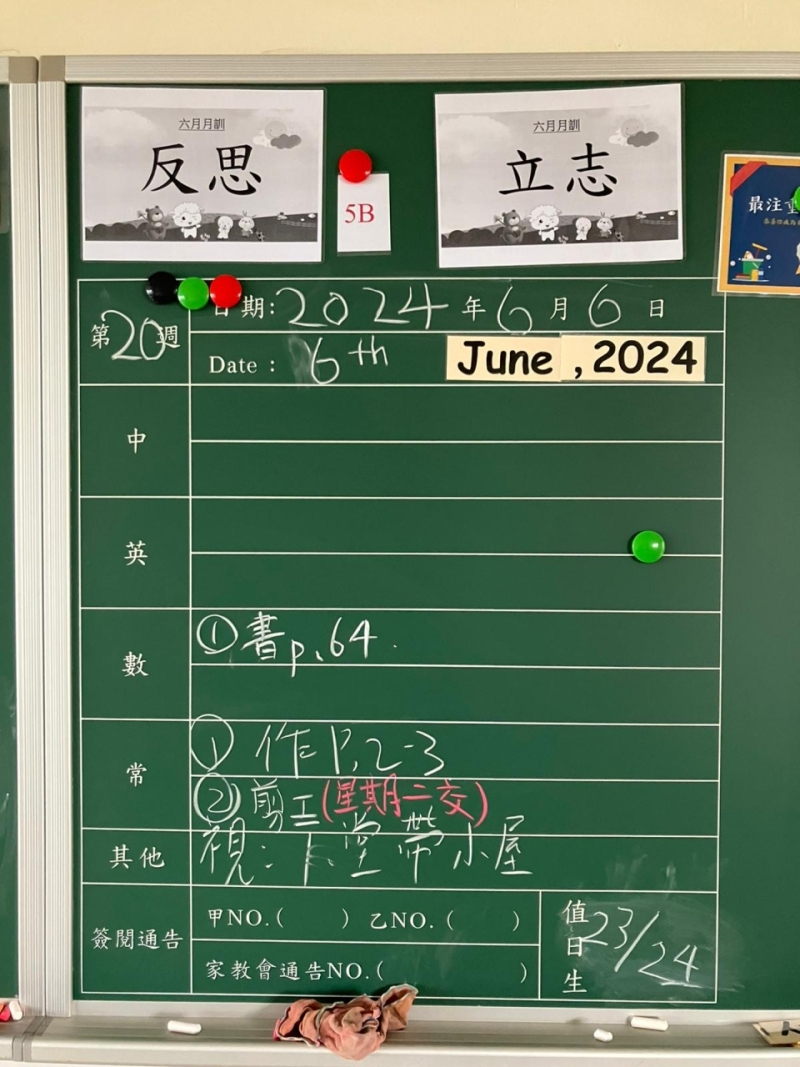 六月月訓
反思
5B
六月月訓
立志
最注重
第20週
日期:2024年6月6日
Date : 6th June , 2024
中
英
數
①書p.64.
常
①作P.2-3
②剪工(星期二交)
其他
視:下堂帶小屋
簽閱通告
甲NO.( ) 乙NO.( )
家教會通告NO.( )
值日生
23/24